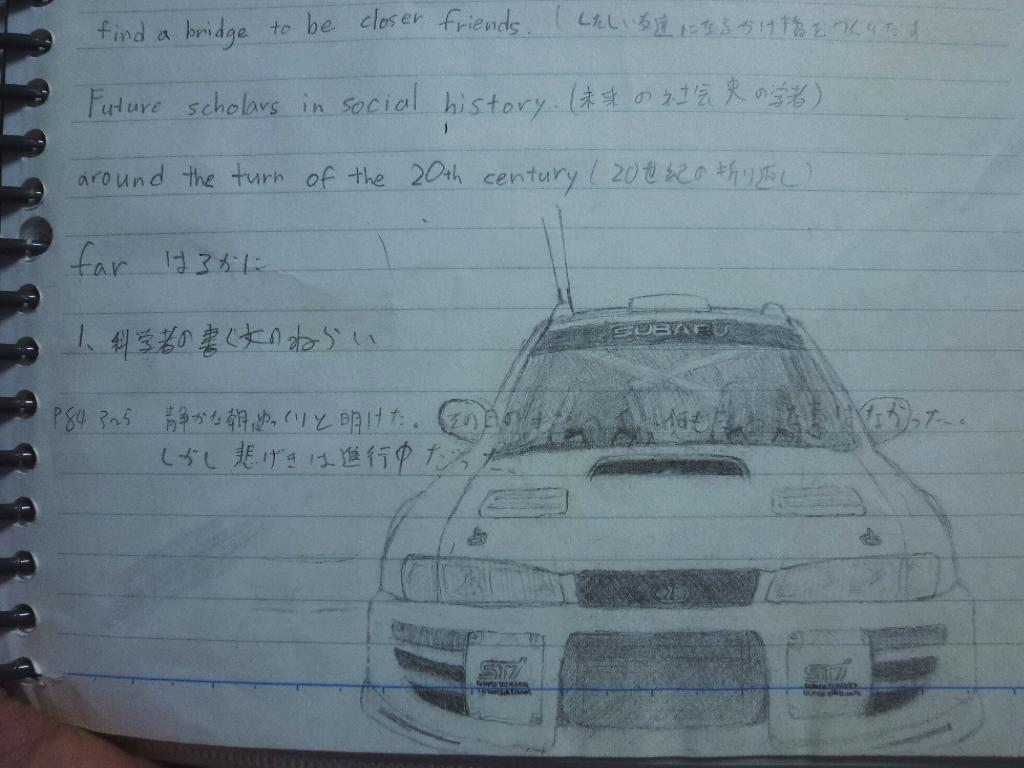 find a bridge to be closer friends. (したしい友達になるかけ橋をつくりだす
Future scholars in social history. (未来の社会史の学者)
around the turn of the 20th century (20世紀の折り返し)
far はるかに
1、科学者の書く文のねらい
SUBARU
P84 3~5 静かな朝ゆっくりと明けた。その日の 何も なかった。
しかし悲げきは進行中だった。
STi STi